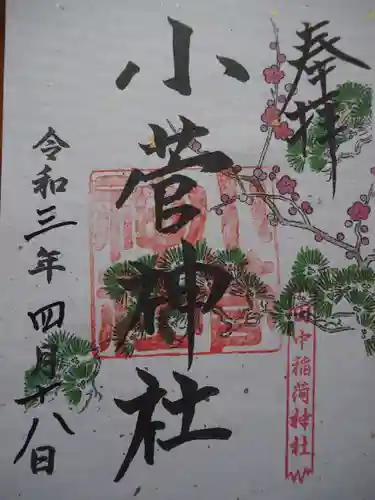 奉拝
小菅神社
令和三年四月十八日
中稲荷神社